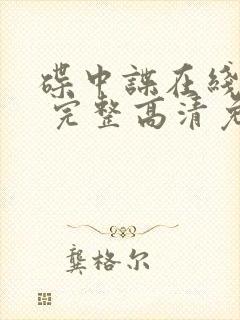 碟中諜在綫
完整高清
龔格尔